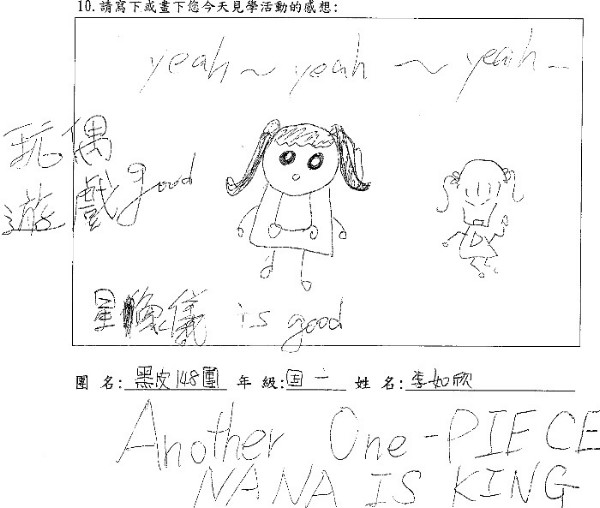 10.請寫下或畫下您今天見學活動的感想:
yeah～yeah～yeah—
玩偶
遊戲good
星像儀 is good
團名:黑皮148團 年級:國一 姓名:李如欣
Another One-PIECE
NANA IS KING